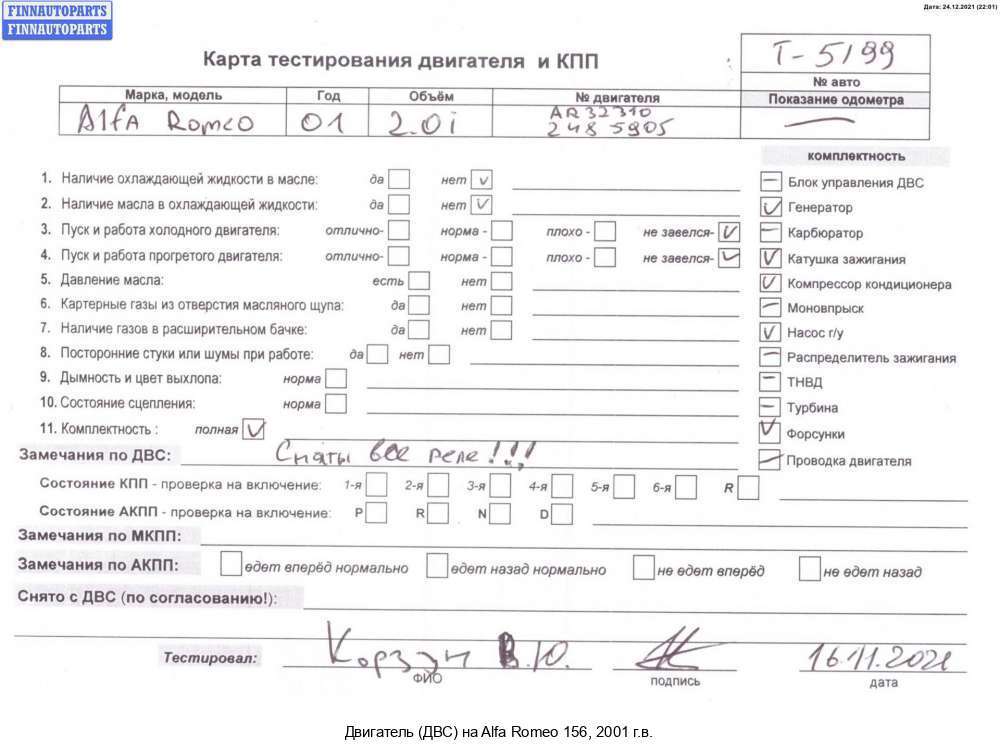 FINNAUTOPARTS
FINNAUTOPARTS
Дата: 24.12.2021 (22:01)
Карта тестирования двигателя и КПП
T-5199
№ авто
Марка, модель Год Объём № двигателя Показание одометра
Alfa Romeo 01 2.0i AR32310
2485905
комплектность
1. Наличие охлаждающей жидкости в масле: да нет V
Блок управления ДВС
2. Наличие масла в охлаждающей жидкости: да нет V
Генератор
3. Пуск и работа холодного двигателя: отлично- норма - плохо - не завелся- V
Карбюратор
4. Пуск и работа прогретого двигателя: отлично- норма - плохо - не завелся- V
Катушка зажигания
5. Давление масла: есть нет
Компрессор кондиционера
6. Картерные газы из отверстия масляного щупа: да нет
Моновпрыск
7. Наличие газов в расширительном бачке: да нет
Насос г/у
8. Посторонние стуки или шумы при работе: да нет
Распределитель зажигания
9. Дымность и цвет выхлопа: норма
ТНВД
10. Состояние сцепления: норма
Турбина
11. Комплектность : полная V
Форсунки
Замечания по ДВС: Сняты все реле!!!
Проводка двигателя
Состояние КПП - проверка на включение: 1-я 2-я 3-я 4-я 5-я 6-я R
Состояние АКПП - проверка на включение: P R N D
Замечания по МКПП:
Замечания по АКПП: едет вперёд нормально едет назад нормально не едет вперёд не едет назад
Снято с ДВС (по согласованию!):
Тестировал: Корзун В.Ю. 16.11.2021
ФИО подпись дата
Двигатель (ДВС) на Alfa Romeo 156, 2001 г.в.